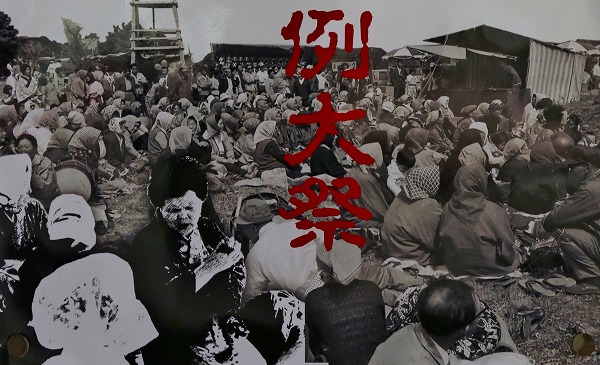 例大祭